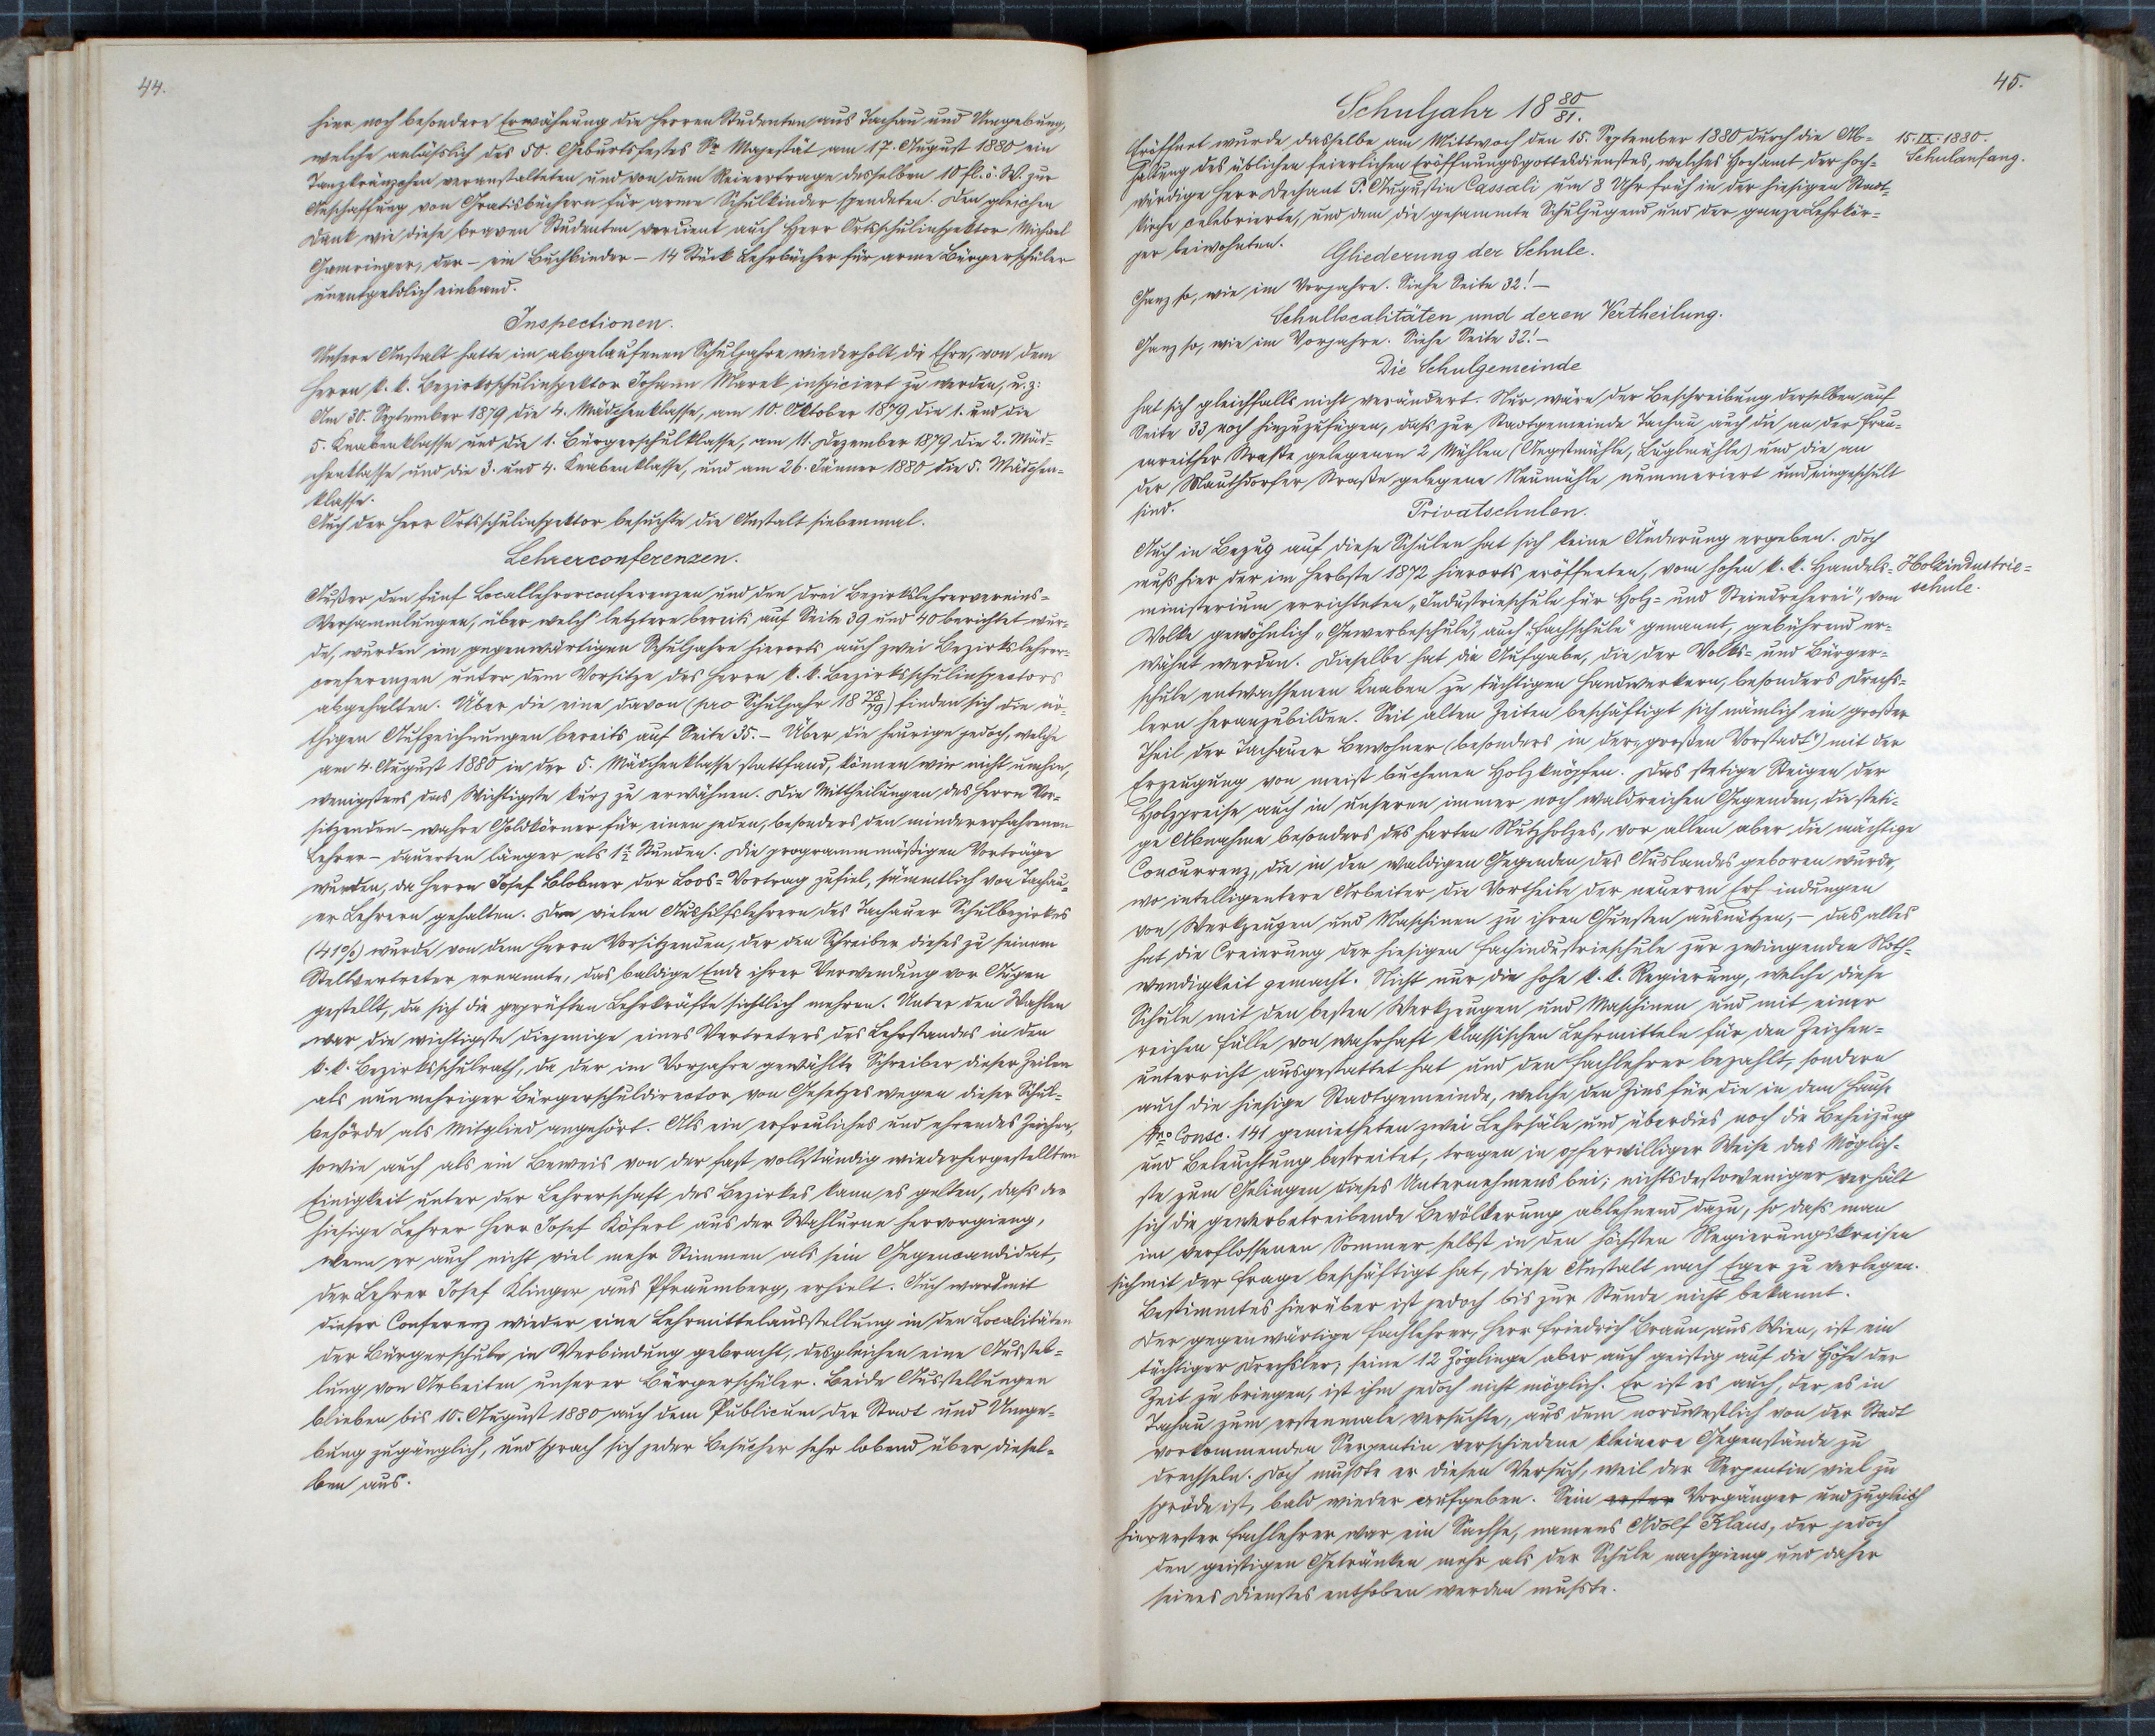 44.
hier noch besondere Erwähnung die Herren Studenten aus Tachau und Umgebung,
welche anläßlich des 50. Geburtsfestes Sr Majestät am 17. August 1880 ein
Tanzkränzchen veranstalteten und von dem Reinertrage desselben 10 fl. ö. W. zur
Anschaffung von Gratisbüchern für arme Schulkinder spendeten. Den gleichen
Dank wie diese braven Studenten verdient auch Herr Ortsschulinspektor Michael
Gameringer, der – ein Buchbinder – 14 Stück Lehrbücher für arme Bürgerschüler
unentgeldlich einband.
Inspectionen.
Unsere Anstalt hatte im abgelaufenen Schuljahre wiederholt die Ehre, von dem
Herrn k. k. Bezirksschulinspektor Johann Marek inspiciert zu werden, u. z:
Am 30. September 1879 die 4. Mädchenklasse, am 10. Oktober 1879 die 1. und die
5. Knabenklasse und die 1. Bürgerschulklasse, am 11. Dezember 1879 die 2. Mäd=
chenklasse und die 3. und 4. Knabenklasse, und am 26. Jänner 1880 die 5. Mädchen=
klasse.
Auch der Herr Ortsschulinspektor besuchte die Anstalt siebenmal.
Lehrerconferenzen.
Außer den fünf Locallehrerconferenzen und den drei Bezirkslehrervereins=
Versammlungen, über welch' letztere bereits auf Seite 39 und 40 berichtet wur=
de, wurden im gegenwärtigen Schuljahre hierorts auch zwei Bezirkslehrer=
conferenzen unter dem Vorsitze des Herrn k. k. Bezirksschulinspectors
abgehalten. Über die eine davon (pro Schuljahr 18 78/79) finden sich die nö=
thigen Aufzeichnungen bereits auf Seite 35. – Über die heurige jedoch, welche
am 4. August 1880 in der 5. Mädchenklasse stattfand, können wir nicht umhin,
wenigstens das Wichtigste kurz zu erwähnen. Die Mittheilungen des Herrn Vor=
sitzenden – wahre Goldkörner für einen jeden, besonders den mindererfahrenen
Lehrer – dauerten länger als 1½ Stunden. Die programmmäßigen Vorträge
wurden, da Herrn Josef Blobner der Loos=Vortrag zufiel, sämmtlich von Tachau=
er Lehrern gehalten. Den vielen Aushilfslehrern des Tachauer Schulbezirkes
(41%) wurde von dem Herrn Vorsitzenden, der den Schreiber dieses zu seinem
Stellvertreter ernannte, das baldige Ende ihrer Verwendung vor Augen
gestellt, da sich die geprüften Lehrkräfte sichtlich mehren. Unter den Wahlen
war die wichtigste diejenige eines Vertreters des Lehrstandes in den
k. k. Bezirksschulrath, da der im Vorjahre gewählte Schreiber dieser Zeilen
als nunmehriger Bürgerschuldirector von Gesetzes wegen dieser Schul=
behörde als Mitglied angehört. Als ein erfreuliches und ehrendes Zeichen,
sowie auch als ein Beweis von der fast vollständig wiederhergestellten
Einigkeit unter der Lehrerschaft des Bezirkes kann es gelten, daß der
hiesige Lehrer Herr Josef Köferl aus der Wahlurne hervorgieng,
wenn er auch nicht viel mehr Stimmen als sein Gegencandidat,
der Lehrer Josef Klinger aus Pfraumberg, erhielt. Auch ward mit
dieser Conferenz wieder eine Lehrmittelausstellung in den Localitäten
der Bürgerschule in Verbindung gebracht, desgleichen eine Ausstel=
lung von Arbeiten unserer Bürgerschüler. Beide Ausstellungen
blieben bis 10. August 1880 auch dem Publicum der Stadt und Umge=
bung zugänglich, und sprach sich jeder Besucher sehr lobend über diesel=
ben aus.
45.
Schuljahr 18 80/81.
Eröffnet wurde dasselbe am Mittwoch den 15. September 1880 durch die Ab=
haltung des üblichen feierlichen Eröffnungsgottesdienstes, welches Hochamt der hoch=
würdige Herr Dechant P. Augustin Cassali um 8 Uhr früh in der hiesigen Stadt=
kirche celebrierte, und dem die gesammte Schuljugend und der ganze Lehrkör=
per beiwohnten.
15. IX. 1880.
Schulanfang.
Gliederung der Schule.
Ganz so, wie im Vorjahre. Siehe Seite 32! –
Schullocalitäten und deren Vertheilung.
Ganz so, wie im Vorjahre. Siehe Seite 32! –
Die Schulgemeinde
hat sich gleichfalls nicht verändert. Nur wäre der Beschreibung derselben auf
Seite 33 noch hinzuzufügen, daß zur Stadtgemeinde Tachau auch die an der Frau=
enreither Straße gelegenen 2 Mühlen (Angstmühle, Luglmühle) und die an
der Mauthdorfer Straße gelegene Neumühle nummeriert und eingeschult
sind.
Privatschulen.
Auch in Bezug auf diese Schulen hat sich keine Änderung ergeben. Doch
muß hier der im Herbste 1872 hierorts eröffneten, vom hohen k. k. Handels=
ministerium errichteten „Industrieschule für Holz= und Steindreherei", vom
Holzindustrie=
schule.
Volke gewöhnlich „Gewerbeschule", auch „Fachschule" genannt, gebührend er=
wähnt werden. Dieselbe hat die Aufgabe, die der Volks= und Bürger=
schule entwachsenen Knaben zu tüchtigen Handwerkern, besonders Drechs=
lern heranzubilden. Seit alten Zeiten beschäftigt sich nämlich ein großer
Theil der Tachauer Bewohner (besonders in der „großen Vorstadt") mit der
Erzeugung von meist buchenen Holzknöpfen. Das stetige Steigen der
Holzpreise auch in unseren immer noch waldreichen Gegenden, die steti=
ge Abnahme besonders des harten Nutzholzes, vor allem aber die mächtige
Concurrenz, die in den waldigen Gegenden des Auslandes geboren wurde,
wo intelligentere Arbeiter die Vortheile der neueren Erfindungen
von Werkzeugen und Maschinen zu ihren Gunsten ausnützen, – das alles
hat die Creierung der hiesigen Fachindustrieschule zur zwingenden Noth=
wendigkeit gemacht. Nicht nur die hohe k. k. Regierung, welche diese
Schule mit den besten Werkzeugen und Maschinen und mit einer
reichen Fülle von wahrhaft klassischen Lehrmitteln für den Zeichen=
unterricht ausgestattet hat und den Fachlehrer bezahlt, sondern
auch die hiesige Stadtgemeinde, welche den Zins für die in dem Hause
Nro Consc. 141 gemietheten zwei Lehrsäle und überdies noch die Beheizung
und Beleuchtung bestreitet, tragen in opferwilliger Weise das Möglich=
ste zum Gelingen dieses Unternehmens bei; nichtsdestoweniger verhält
sich die gewerbetreibende Bevölkerung ablehnend dazu, so daß man
im verflossenen Sommer selbst in den höchsten Regierungskreisen
sich mit der Frage beschäftigt hat, diese Anstalt nach Eger zu verlegen.
Bestimmtes hierüber ist jedoch bis zur Stunde nicht bekannt.
Der gegenwärtige Fachlehrer, Herr Friedrich Braun, aus Wien, ist ein
tüchtiger Drechsler; seine 12 Zöglinge aber auch geistig auf die Höhe der
Zeit zu bringen, ist ihm jedoch nicht möglich. Er ist es auch, der es in
Tachau zum erstenmale versuchte, aus dem nordwestlich von der Stadt
vorkommenden Serpentin verschiedene kleinere Gegenstände zu
drechseln. Doch mußte er diesen Versuch, weil der Serpentin viel zu
spröde ist, bald wieder aufgeben. Sein erster Vorgänger und zugleich
hier erster Fachlehrer war ein Sachse, namens Adolf Klaus, der jedoch
den geistigen Getränken mehr als der Schule nachgieng und daher
seines Dienstes enthoben werden mußte.